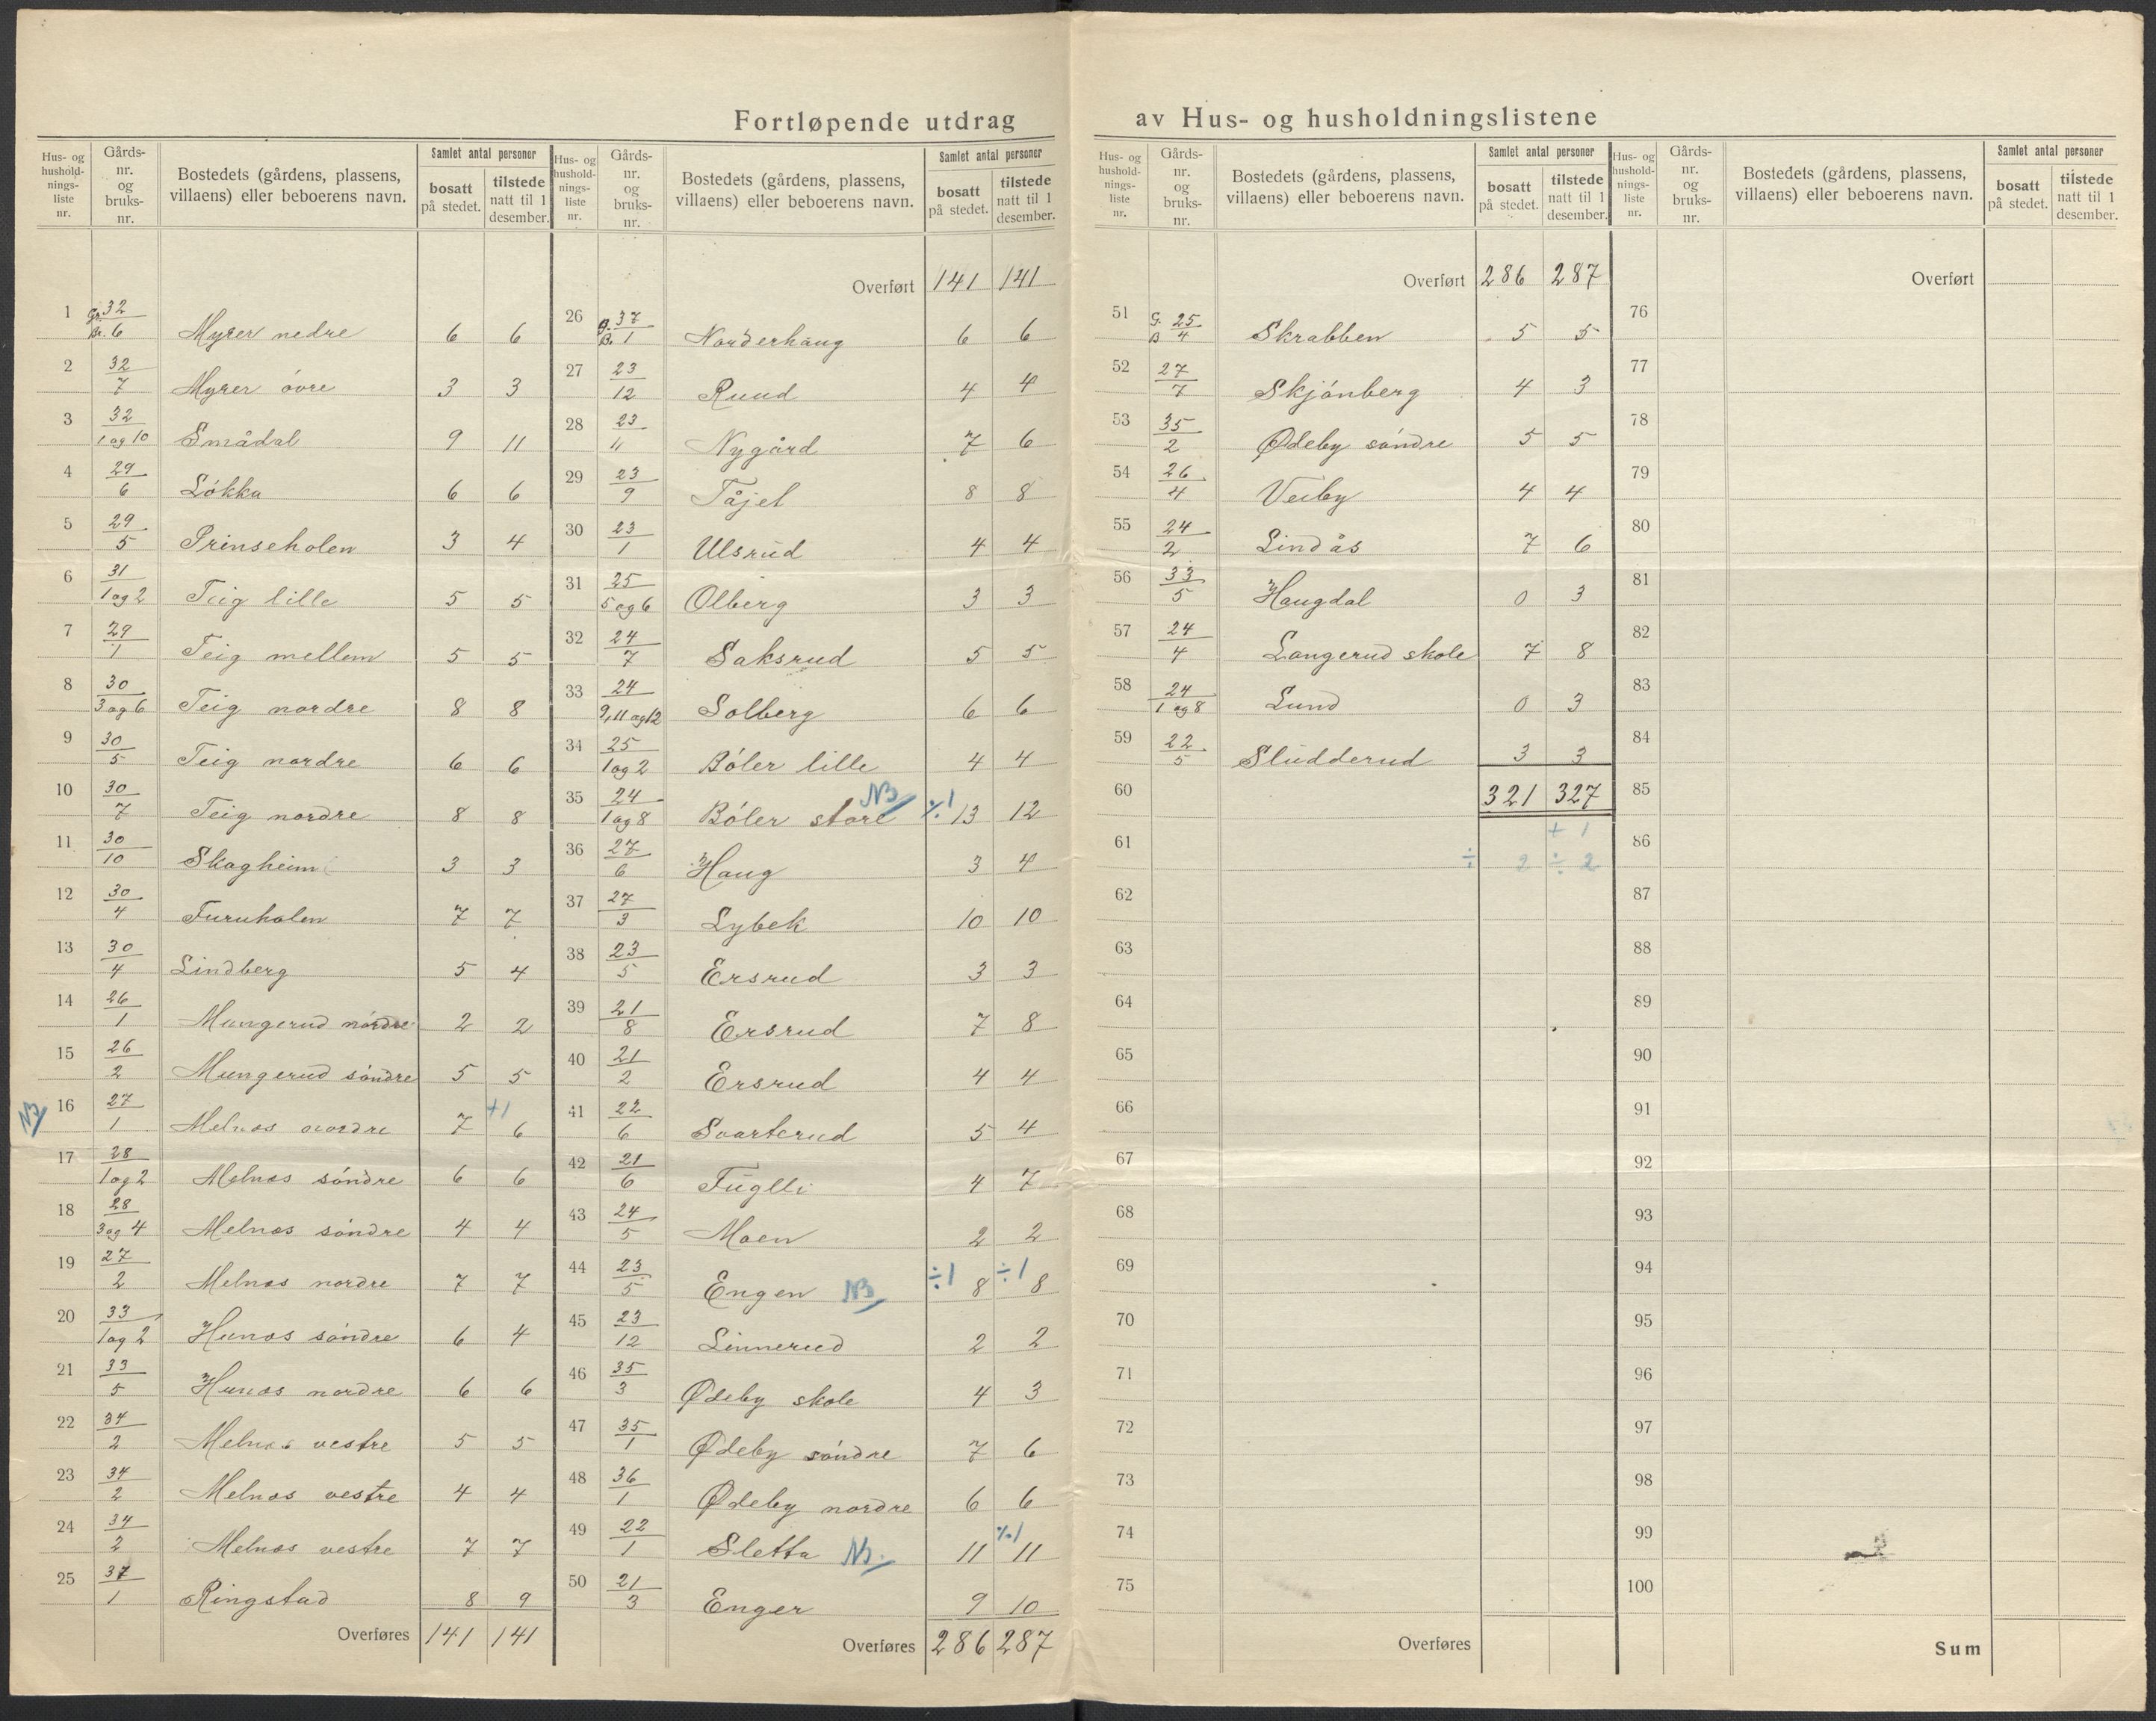 Fortløpende utdrag av Hus- og husholdningslistene
Hus- og hushold-nings-liste nr. | Gårds-nr. og bruks-nr. | Bostedets (gårdens, plassens, villaens) eller beboerens navn. | Samlet antal personer | bosatt på stedet. | tilstede natt til 1 desember.
1 | Gr. 32 Br. 6 | Myrer nedre | 6 | 6
2 | 32/7 | Myrer øvre | 3 | 3
3 | 32/1 og 10 | Smådal | 9 | 11
4 | 29/6 | Løkka | 6 | 6
5 | 29/5 | Prinseholen | 3 | 4
6 | 31/1 og 2 | Teig lille | 5 | 5
7 | 29/1 | Teig mellem | 5 | 5
8 | 30/3 og 6 | Teig nordre | 8 | 8
9 | 30/5 | Teig nordre | 6 | 6
10 | 30/7 | Teig nordre | 8 | 8
11 | 30/10 | Skogheim | 3 | 3
12 | 30/4 | Furuholen | 7 | 7
13 | 30/4 | Lindberg | 5 | 4
14 | 26/1 | Mungerud nordre | 2 | 2
15 | 26/2 | Mungerud søndre | 5 | 5
NB 16 | 27/1 | Melnes nordre | 7 | +1 6
17 | 28/1 og 2 | Melnes søndre | 6 | 6
18 | 28/3 og 4 | Melnes søndre | 4 | 4
19 | 27/2 | Melnes nordre | 7 | 7
20 | 33/1 og 2 | Hunes søndre | 6 | 4
21 | 33/5 | Hunes nordre | 6 | 6
22 | 34/2 | Melnes vestre | 5 | 5
23 | 34/2 | Melnes vestre | 4 | 4
24 | 34/2 | Melnes vestre | 7 | 7
25 | 37/1 | Ringstad | 8 | 9
Overføres | 141 | 141
Hus- og hushold-nings-liste nr. | Gårds-nr. og bruks-nr. | Bostedets (gårdens, plassens, villaens) eller beboerens navn. | Samlet antal personer | bosatt på stedet. | tilstede natt til 1 desember.
Overført | 141 | 141
26 | G. 37 B. 1 | Norderhaug | 6 | 6
27 | 23/12 | Ruud | 4 | 4
28 | 23/11 | Nygård | 7 | 6
29 | 23/9 | Tåjet | 8 | 8
30 | 23/1 | Ulsrud | 4 | 4
31 | 25/5 og 6 | Olberg | 3 | 3
32 | 24/7 | Saksrud | 5 | 5
33 | 24/9, 11 og 12 | Solberg | 6 | 6
34 | 25/1 og 2 | Bøler lille | 4 | 4
35 | 24/1 og 8 | Bøler store NB | ٪1 13 | 12
36 | 27/6 | Haug | 3 | 4
37 | 27/3 | Lybek | 10 | 10
38 | 23/5 | Ersrud | 3 | 3
39 | 21/8 | Ersrud | 7 | 8
40 | 21/2 | Ersrud | 4 | 4
41 | 22/6 | Svarterud | 5 | 4
42 | 21/6 | Fuglli | 4 | 7
43 | 24/5 | Moen | 2 | 2
44 | 23/5 | Engen NB | ÷1 8 | ÷1 8
45 | 23/12 | Linnerud | 2 | 2
46 | 35/3 | Ødeby skole | 4 | 3
47 | 35/1 | Ødeby søndre | 7 | 6
48 | 36/1 | Ødeby nordre | 6 | 6
49 | 22/1 | Sletta NB. | 11 | ٪1 11
50 | 21/3 | Enger | 9 | 10
Overføres | 286 | 287
Hus- og hushold-nings-liste nr. | Gårds-nr. og bruks-nr. | Bostedets (gårdens, plassens, villaens) eller beboerens navn. | Samlet antal personer | bosatt på stedet. | tilstede natt til 1 desember.
Overført | 286 | 287
51 | G. 25 B 4 | Skrabben | 5 | 5
52 | 27/7 | Skjønberg | 4 | 3
53 | 35/2 | Ødeby søndre | 5 | 5
54 | 26/4 | Veiby | 4 | 4
55 | 24/2 | Lindås | 7 | 6
56 | 33/5 | Haugdal | 0 | 3
57 | 24/4 | Langerud skole | 7 | 8
58 | 24/1 og 8 | Lund | 0 | 3
59 | 22/5 | Sludderud | 3 | 3
60 | 321 | 327
+ 1
61 | ÷ 2 | ÷ 2
62
63
64
65
66
67
68
69
70
71
72
73
74
75
Overføres
Hus- og hushold-nings-liste nr. | Gårds-nr. og bruks-nr. | Bostedets (gårdens, plassens, villaens) eller beboerens navn. | Samlet antal personer | bosatt på stedet. | tilstede natt til 1 desember.
Overført
76
77
78
79
80
81
82
83
84
85
86
87
88
89
90
91
92
93
94
95
96
97
98
99
100
Sum